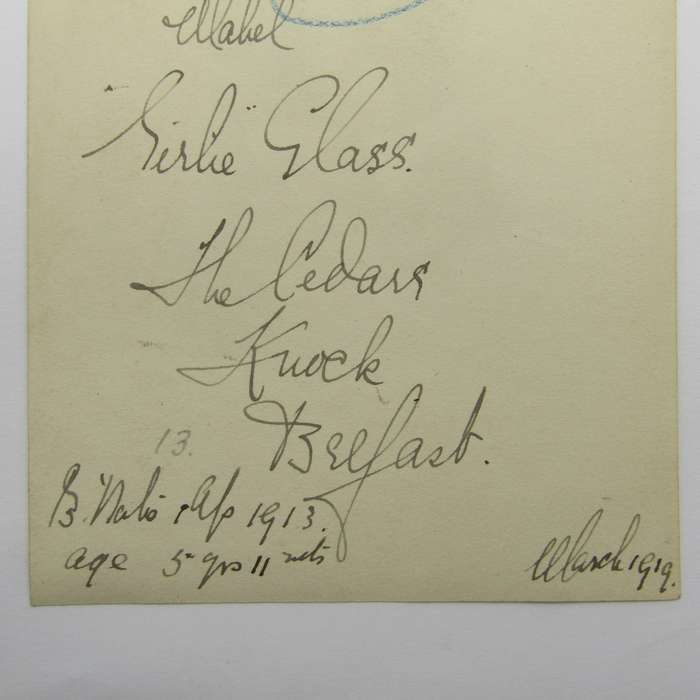 Mabel
"Girlie" Glass.
The Cedars
Knock
Belfast.
13.
1913.
age 5 yrs 11 mths
March 1919.